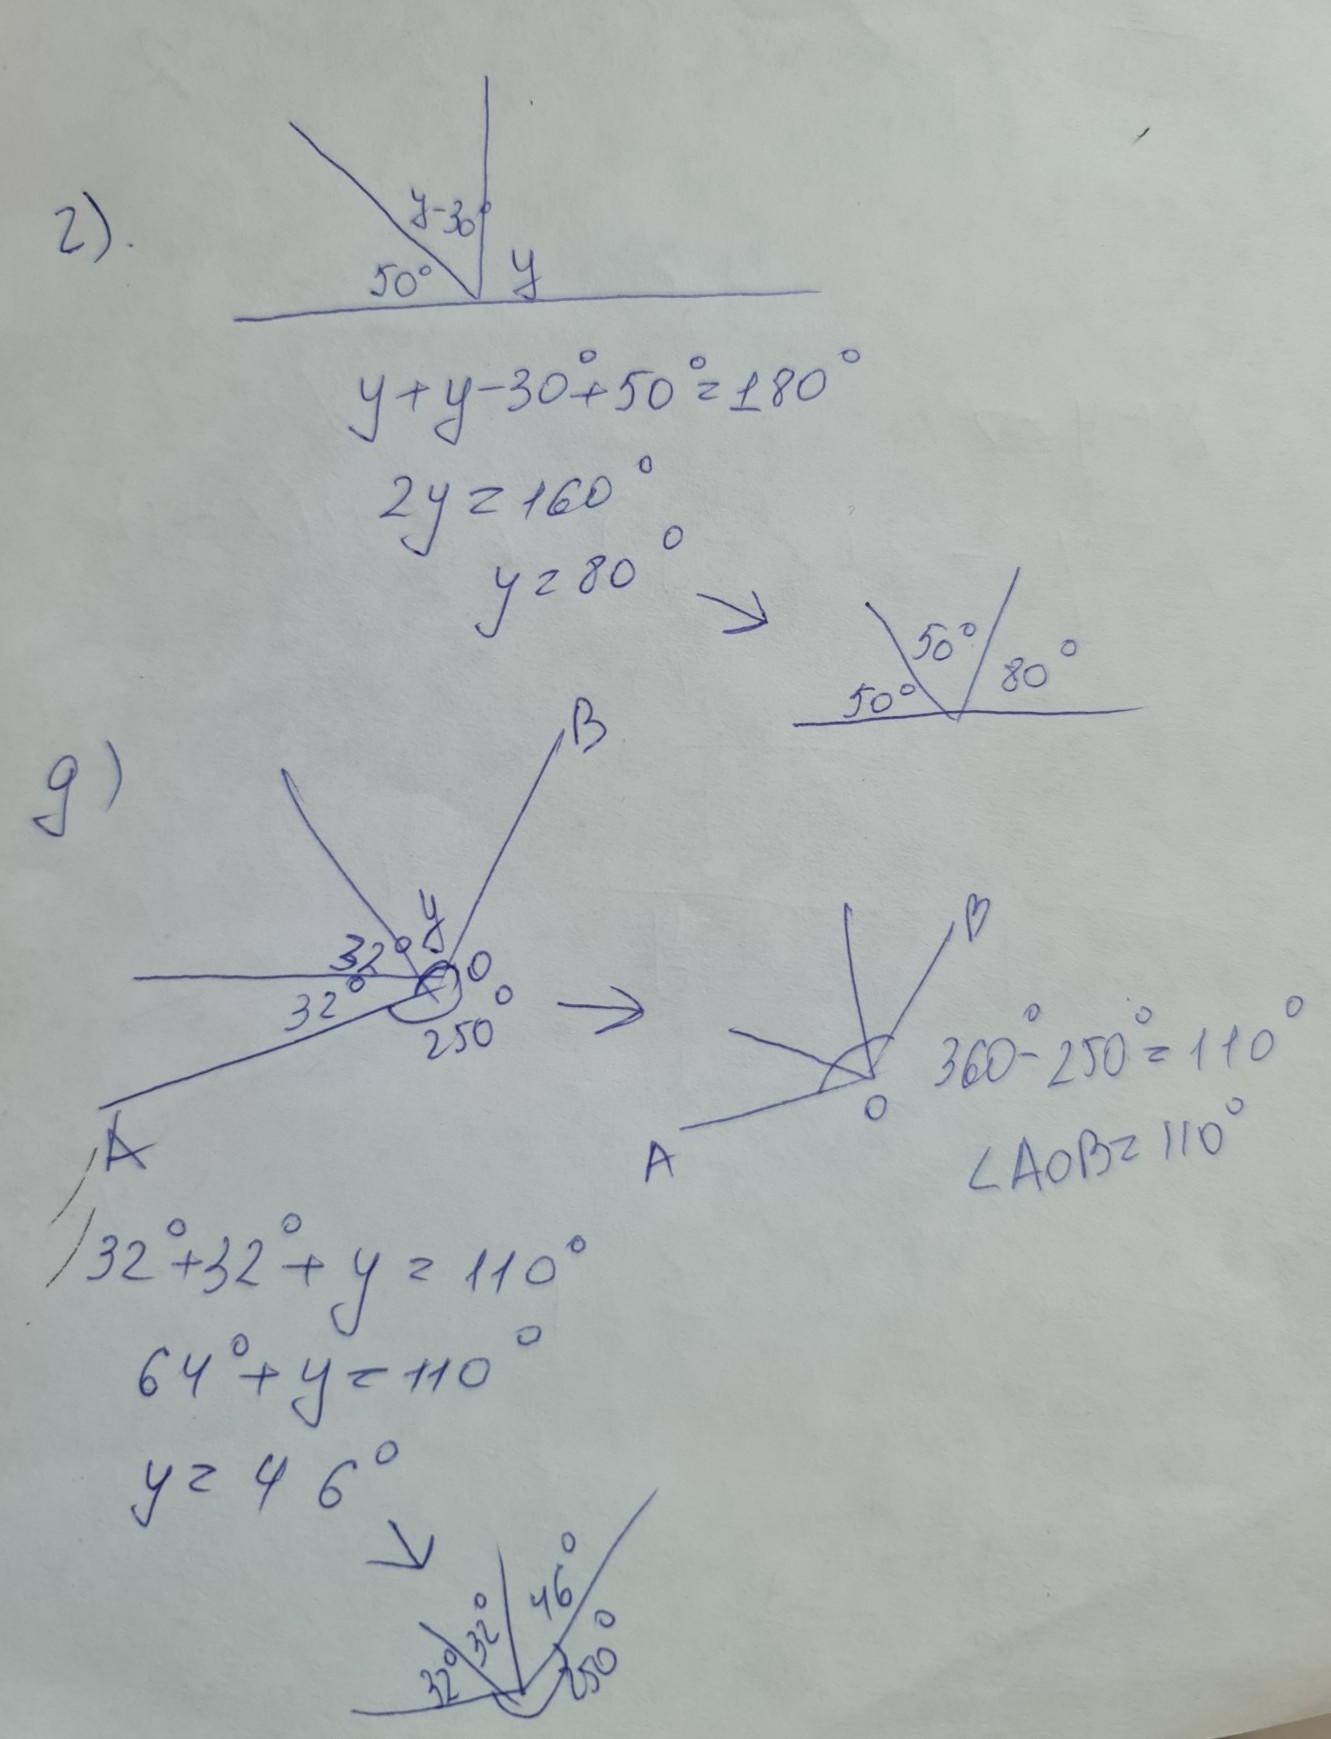 г).
y-30°
50° y
y+y-30°+50°=180°
2y=160°
y=80°
50°
50° 80°
g)
B
y
32° O
32°
250°
A
B
360°-250°=110°
O
A
∠AOB=110°
32°+32°+y=110°
64°+y=110°
y=46°
46°
32°
32° 250°